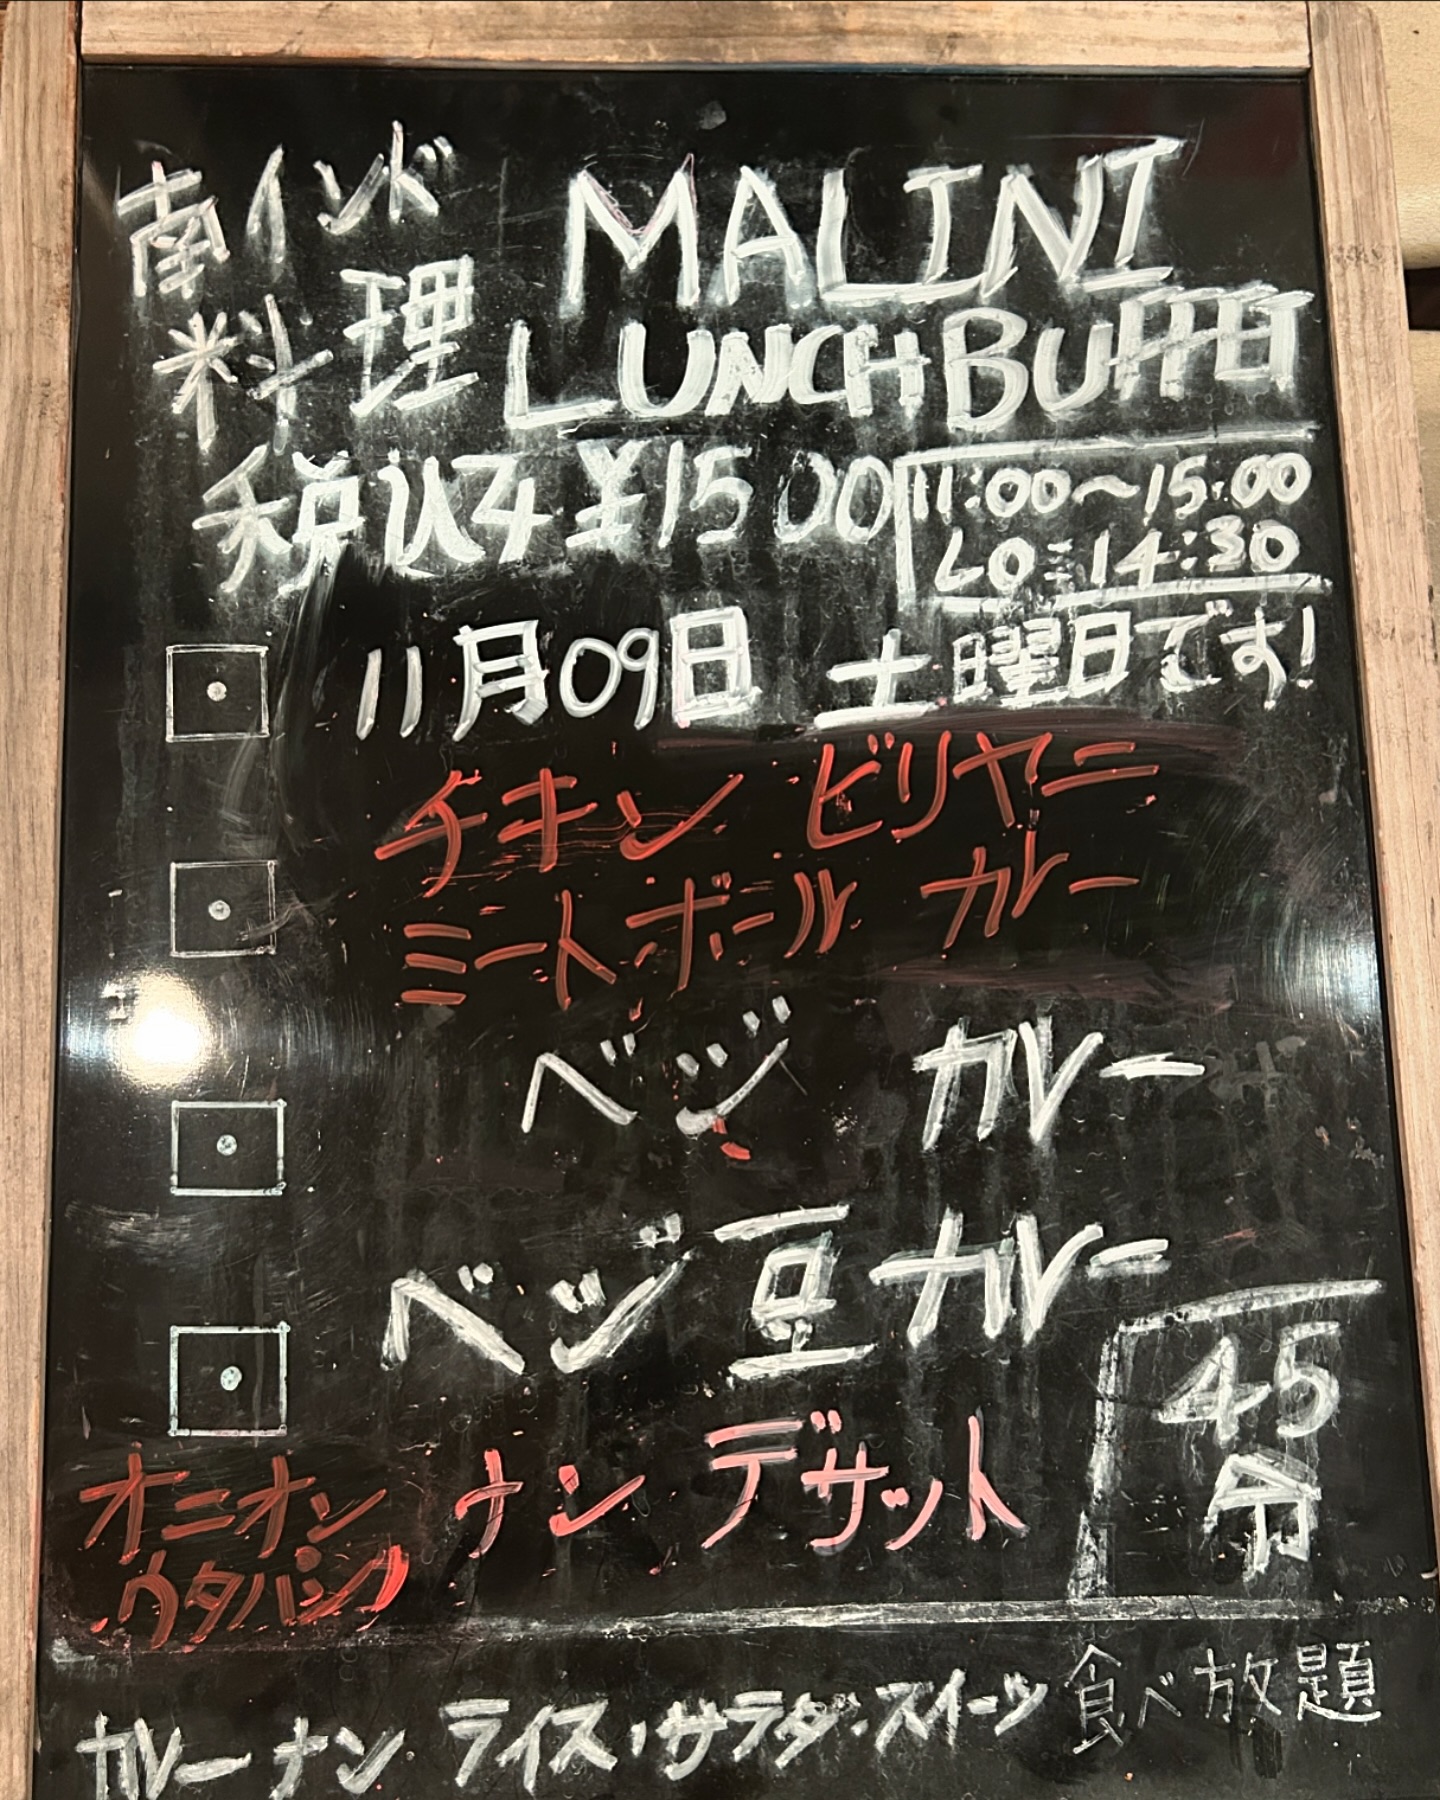 南インド MALINI
料理 LUNCH BUFFET
税込み ¥1500 11:00～15:00
LO:14:30
11月09日 土曜日です!
チキン ビリヤニ
ミートボール カレー
ベジ カレー
ベジ 豆カレー
45分
オニオン ナン デザット
ウタパン
カレー ナン ライス・サラダ・スイーツ 食べ放題